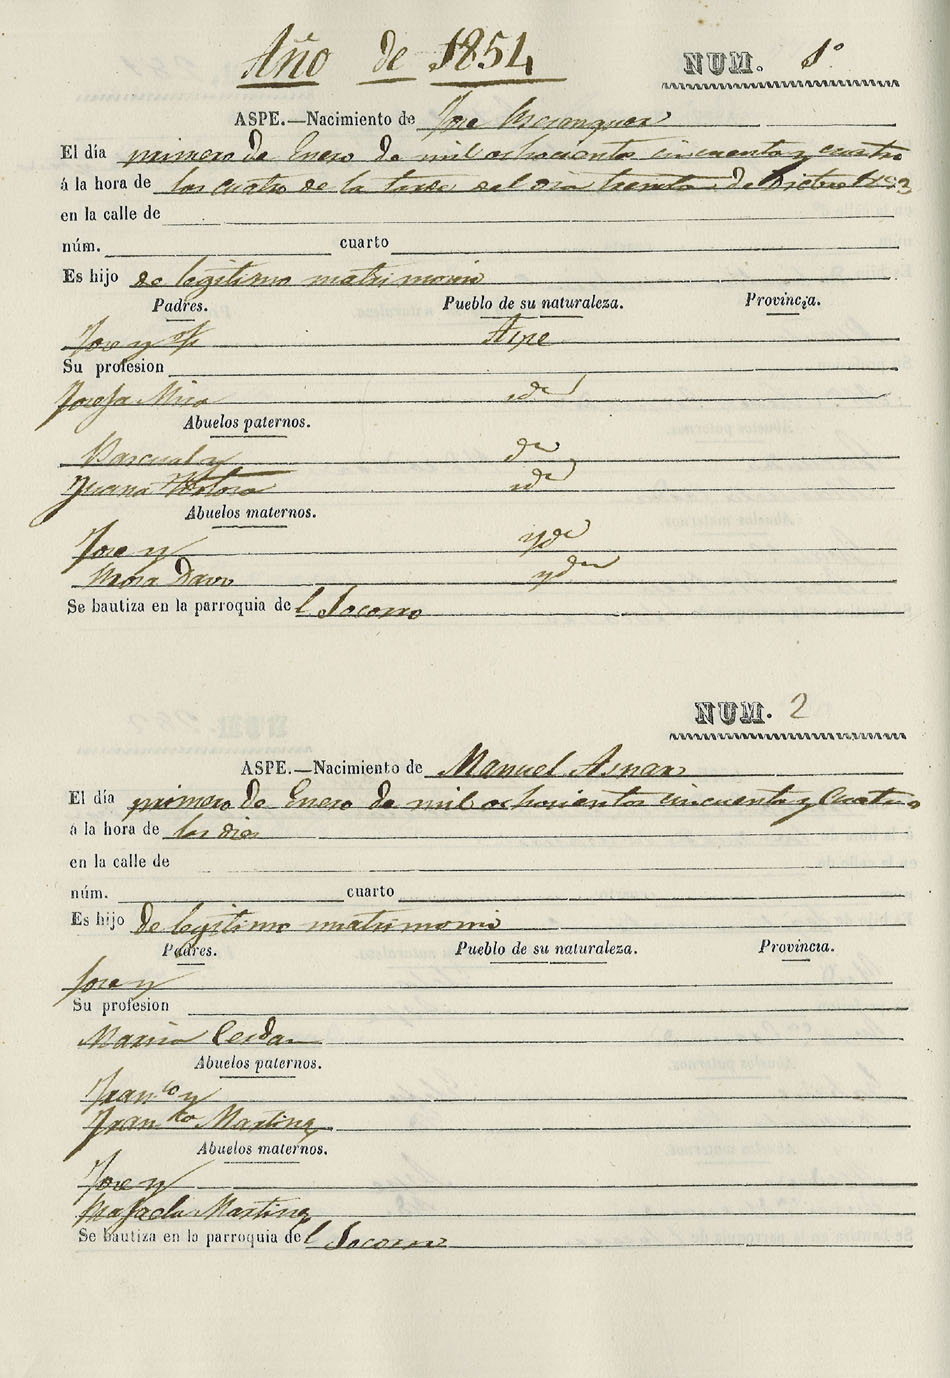 Año de 1854
NUM. 1º
ASPE.—Nacimiento de Jose
El día primero de Enero de mil ochocientos cincuenta y cuatro
á la hora de las cuatro de la tarde del dia treinta de Dicbre 1853
en la calle de
núm. cuarto
Es hijo de legitimo matrimonio
Padres. Pueblo de su naturaleza. Provincia.
Jose y Aspe
Su profesion
Josefa Miro id
Abuelos paternos.
Pascual y id
Juana id
Abuelos maternos.
Jose y yd
Rosa yd
Se bautiza en la parroquia del Socorro
NUM. 2
ASPE.—Nacimiento de Manuel Asnar
El día primero de Enero de mil ochosientos cincuenta y Cuatro
á la hora de las dies
en la calle de
núm. cuarto
Es hijo de legitimo matrimonio
Padres. Pueblo de su naturaleza. Provincia.
Jose y
Su profesion
Maria Cerdan
Abuelos paternos.
Franco y
Franca Martinez
Abuelos maternos.
Jose y
Rafaela Martinez
Se bautiza en la parroquia del Socorro